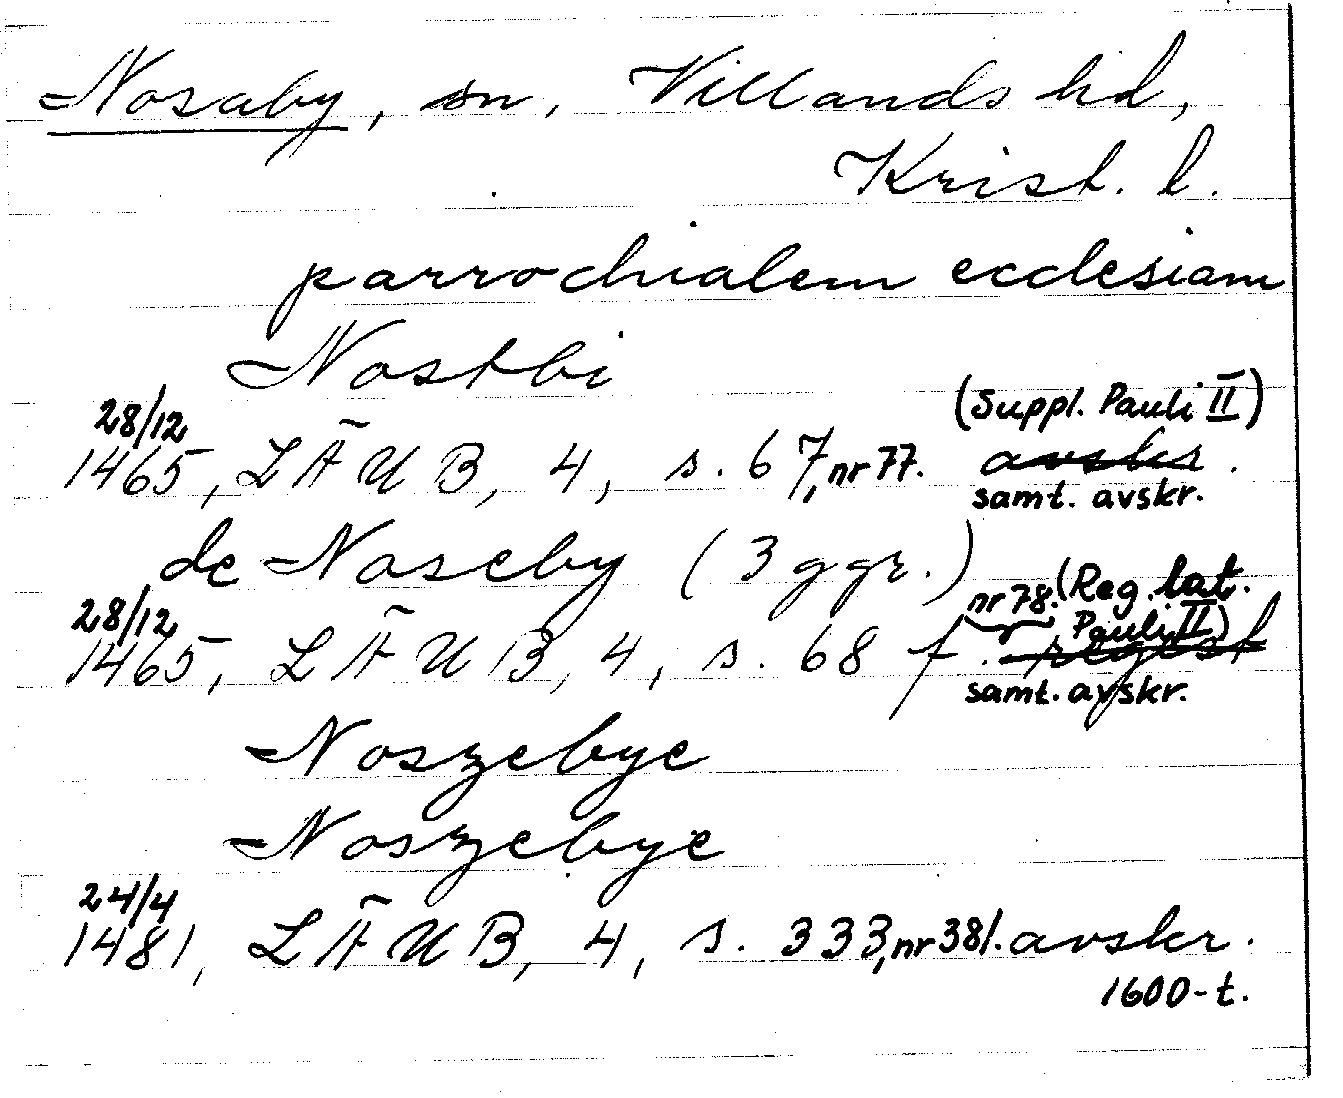 Nosaby, sn, Villands hd,
Krist. l.
parrochialem ecclesiam
Nostbi
28/12 (Suppl. Pauli II)
1465, LÄUB, 4, s. 67, nr 77. avskr.
samt. avskr.
de Noseby (3 ggr.)
28/12 nr 78. (Reg. lat. Pauli II)
1465, LÄUB, 4, s. 68 f. regest
samt. avskr.
Noszebye
Noszebye
24/4
1481, LÄUB, 4, s. 333, nr 381. avskr.
1600-t.